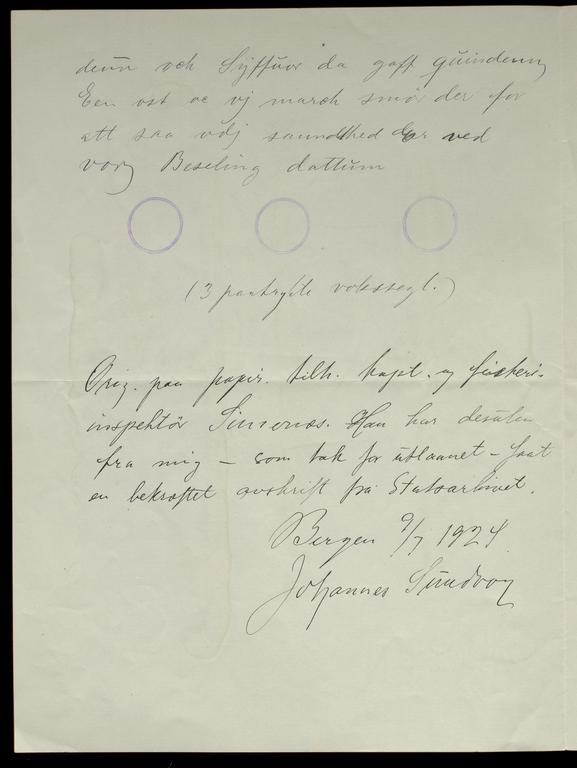 denn och Syffuor da gaff quindenn
Een ost oc vj march smør der for
att saa udj saundhed er ved
vorz Beseling dattum
(3 paatrykte vokssegl.)
Orig. paa papir. tilh. kapt. og fiskeri-
inspektör Simonæs. Han har desuten
fra mig – som tak for utlaanet – faat
en bekræftet avskrift fra Statsarkivet.
Bergen 9/7 1924
Johannes Sundvor